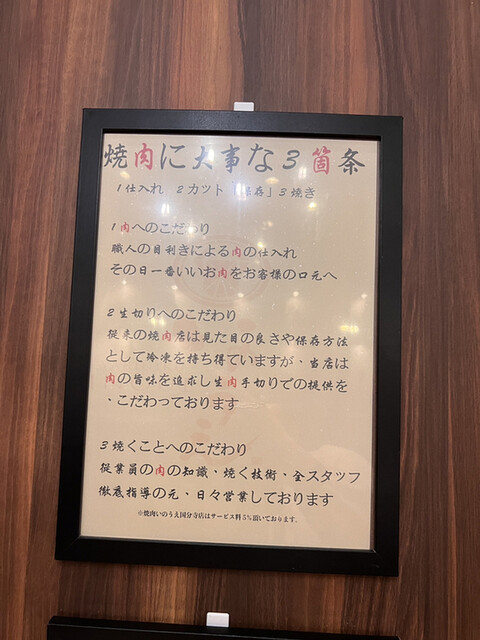 焼肉に大事な3箇条
1仕入れ 2カット「保存」3焼き
1肉へのこだわり
職人の目利きによる肉の仕入れ
その日一番いいお肉をお客様の口元へ
2生切りへのこだわり
従来の焼肉店は見た目の良さや保存方法
として冷凍を持ち得ていますが、当店は
肉の旨味を追求し生肉手切りでの提供を
、こだわっております
3焼くことへのこだわり
従業員の肉の知識、焼く技術、全スタッフ
徹底指導の元、日々営業しております
※焼肉いのうえ国分寺店はサービス料5%頂いております。